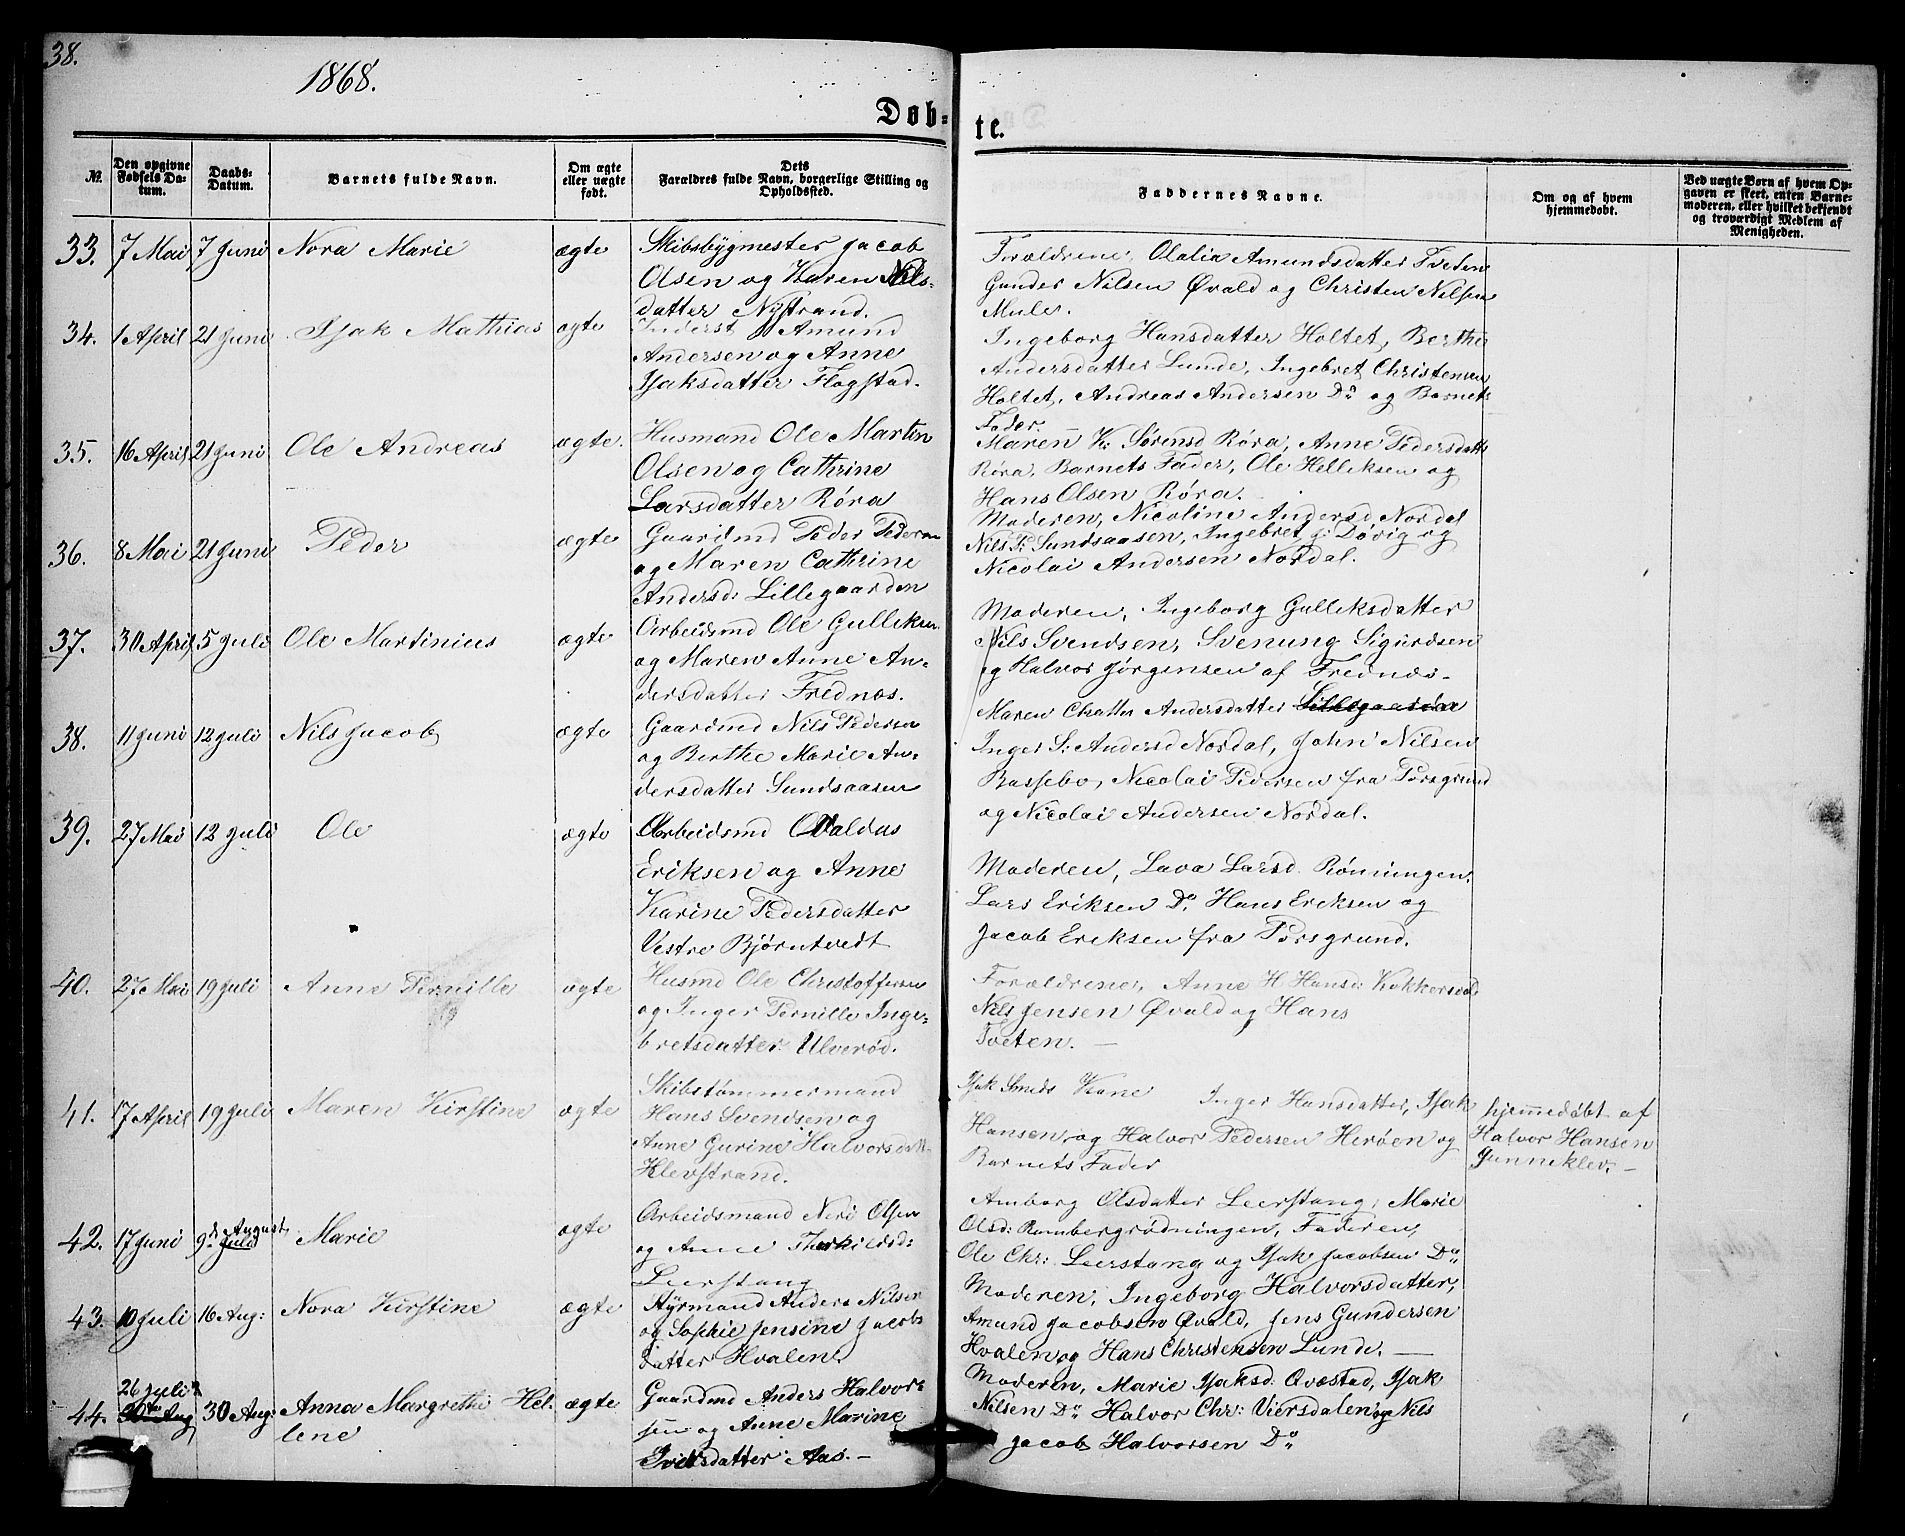 38.
1868.
Døb-
te.
№
Den opgivne Fødsels Datum.
Daabs-Datum.
Barnets fulde Navn.
Om ægte eller uægte født.
Dets Forældres fulde Navn, borgerlige Stilling og Opholdssted.
Faddernes Navne.
Om og af hvem hjemmedøbt.
Ved uægte Børn af hvem Opgaven er skeet, enten Barnemoderen, eller hvilket bekjendt og troværdigt Medlem af Menigheden.
33. 7 Mai 7 Juni Nora Marie ægte Skibsbygmester Jacob
Olsen og Karen Nils-
datter Nystrand.
Forældrene, Olalia Amundsdatter Tveden
Gunder Nilsen Øvald og Christen Nilsen
Mule.
34. 1 April 21 Juni Isak Mathias ægte Inderst Amund
Andersen og Anne
Isaksdatter Flogstad.
Ingeborg Hansdatter Holtet, Berthe
Andersdatter Lunde, Ingebret Christensen
Holtet, Andreas Andersen Do og Barnets
Fader.
35. 16 April 21 Juni Ole Andreas ægte. Husmand Ole Martin
Olsen og Cathrine
Larsdatter Røra
Maren K: Sørensd Røra, Anne Pedersdatt
Røra, Barnets Fader, Ole Helleksen og
Hans Olsen Røra.
36. 8 Mai 21 Juni Peder ægte Gaardmd Peder Pedersen
og Maren Cathrine
Andersd: Lillegaarden
Moderen, Nicoline Andersd Nordal
Nils P. Sundsaasen, Ingebret J: Døvig og
Nicolai Andersen Nordal.
37. 30 April 5 Juli Ole Martinius ægte Arbeidsmd Ole Gulliksen
og Maren Anne An-
dersdatter Frednes.
Moderen, Ingeborg Gulleksdatter
Nils Svendsen, Svenung Sigurdsen
og Halvor Jørgensen af Frednes-
38. 11 Juni 12 Juli Nils Jacob ægte Gaardmd Nils Pedersen
og Berthe Marie An-
dersdatter Sundsaasen
Maren Chatter Andersdatter Lillegaarden
Inger S: Andersd Nordal, John Nilsen
Bassebo, Nicolai Pedersen fra Porsgrund
og Nicolai Andersen Nordal.
39. 27 Mai 12 Juli Ole ægte Arbeidsmd Ovaldus
Eriksen og Anne
Karine Pedersdatter
Vestre Bjørntvedt
Moderen, Lava Larsd. Rønningen,
Lars Eriksen Do. Hans Eriksen og
Jacob Eriksen fra Porsgrund.
40. 27 Mai 19 Juli Anne Pernille ægte Husmd Ole Christoffersen
og Inger Pernille Inge-
bretsdatter Ulverød.
Forældrene, Anne H Hansd: Kokkersvold
Nils Jensen Øvald og Hans
Tveten. —
41. 17 April 19 Juli Maren Kirstine ægte Skibstømmermand
Hans Svendsen og
Anne Gurine Halvorsdatt
Klevstrand.
Isak Smeds Kone Inger Hansdatter, Isak
Hansen og Halvor Pedersen Herøen og
Barnets Fader
hjemmedøbt af
Halvor Hansen
Gunneklev. —
42. 17 Juni 9de Juli August, Marie ægte Arbeidsmand Neri Olsen
og Anne Therkildsd:
Leerstang
Amborg Olsdatter Leerstang, Marie
Olsd: Rambergrødningen, Faderen,
Ole Chr: Leerstang og Isak Jacobsen Do
43. 10 Juli 16 Aug: Nora Kirstine ægte Styrmand Anders Nilsen
og Sophie Jensine Jacobs
datter Hvalen.
Moderen, Ingeborg Halvorsdatter,
Amund Jacobsen Øvald, Jens Gundersen
Hvalen og Hans Christensen Lunde. —
44. 26 Juli 30 Aug: Anna Margrethe Hel-
lene ægte Gaardmd Anders Halvor-
sen og Anne Marine
Iversdatter Aas. —
Moderen, Marie Isaksd. Qvæstad, Isak
Nilsen Do Halvor Chr: Viersdalen og Nils
Jacob Halvorsen Do